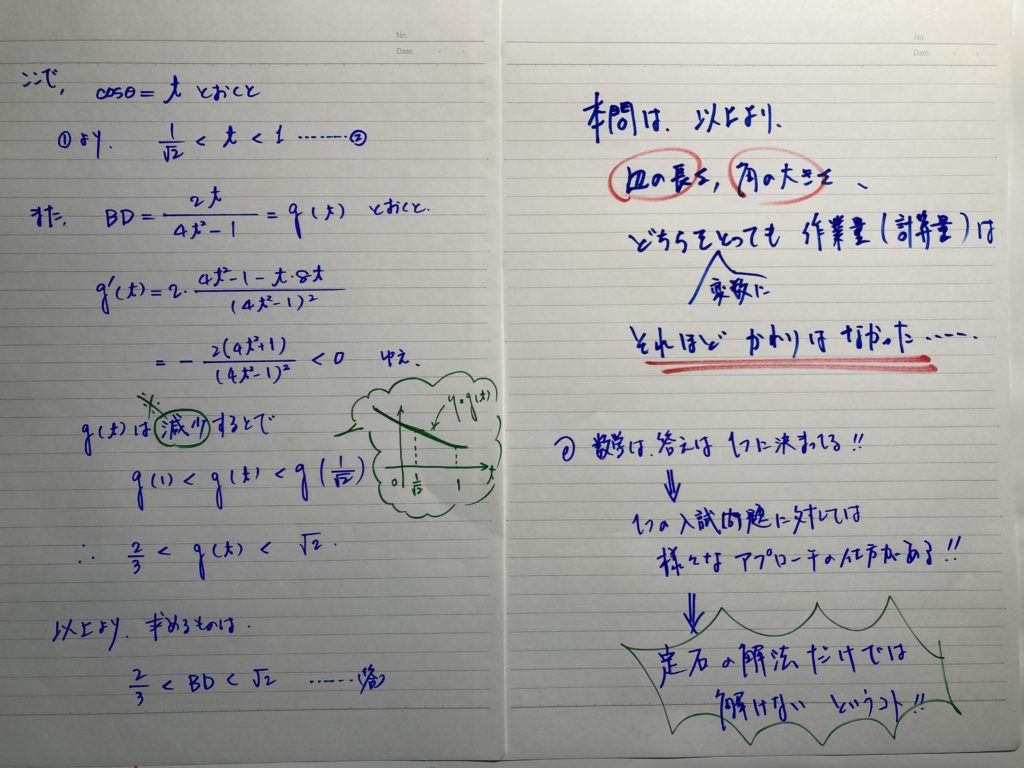 No.
Date
ここで,
cosθ = t とおくと
①より. 1/√2 < t < 1 ……②
また, BD = 2t/(4t²-1) = g(t) とおくと.
g'(t) = 2・(4t²-1-t・8t)/(4t²-1)²
= - 2(4t²+1)/(4t²-1)² < 0 ゆえ.
g(t)は減少するので
y=g(t)
0 1/√2 1 t
g(1) < g(t) < g(1/√2)
∴ 2/3 < g(t) < √2.
以上より. 求めるものは.
2/3 < BD < √2 ……(答)
No.
Date
本問は. 以上より、
辺の長さ, 角の大きさ、
どちらをとっても 作業量(計算量)は
変数に
それほど かわりは なかった……
数学は、答えは 1つに決まってる!!
⇓
1つの入試問題に対しては
様々な アプローチの仕方がある!!
⇓
定石の解法だけでは
解けない というコト!!